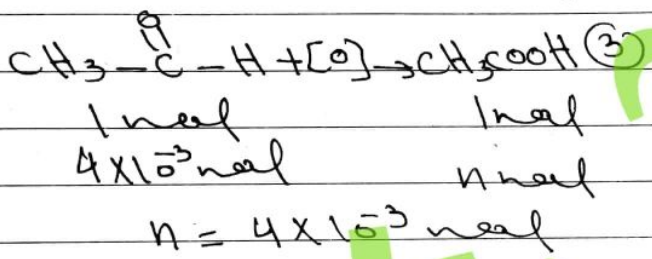 O
CH3-C-H+[O]→CH3COOH ③
1 mol 1 mol
4×10⁻³ mol n mol
n = 4×10⁻³ mol